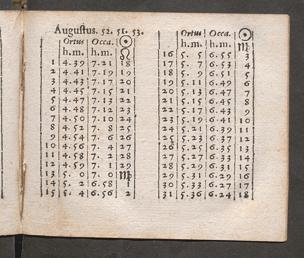 Augustus. 52. 51. 53.
Ortus Occa. ☉
h.m. h.m. ♌
1 4.39 7.21 18
2 4.41 7.19 19
3 4.43 7.17 20
4 4.45 7.15 21
5 4.47 7.13 22
6 4.48 7.12 23
7 4.50 7.10 24
8 4.52 7. 8 25
9 4.54 7. 6 26
10 4.56 7. 4 27
11 4.58 7. 2 28
12 4.59 7. 1 29
13 5. 0 7. 0 ♍
14 5. 2 6.58 1
15 5. 4 6.56 2
Ortus Occa. ☉
h.m. h.m. ♍
16 5. 6.55 3
17 5. 7 6.53 4
18 5. 9 6.51 5
19 5.11 6.49 6
20 5.13 6.47 7
21 5.15 6.45 8
22 5.17 6.43 9
23 5.19 6.41 10
24 5.21 6.39 11
25 5.23 6.37 12
26 5.25 6.35 13
27 5.27 6.33 14
28 5.29 6.31 15
29 5.31 6.29 16
30 5.33 6.27 17
31 5.36 6.24 18